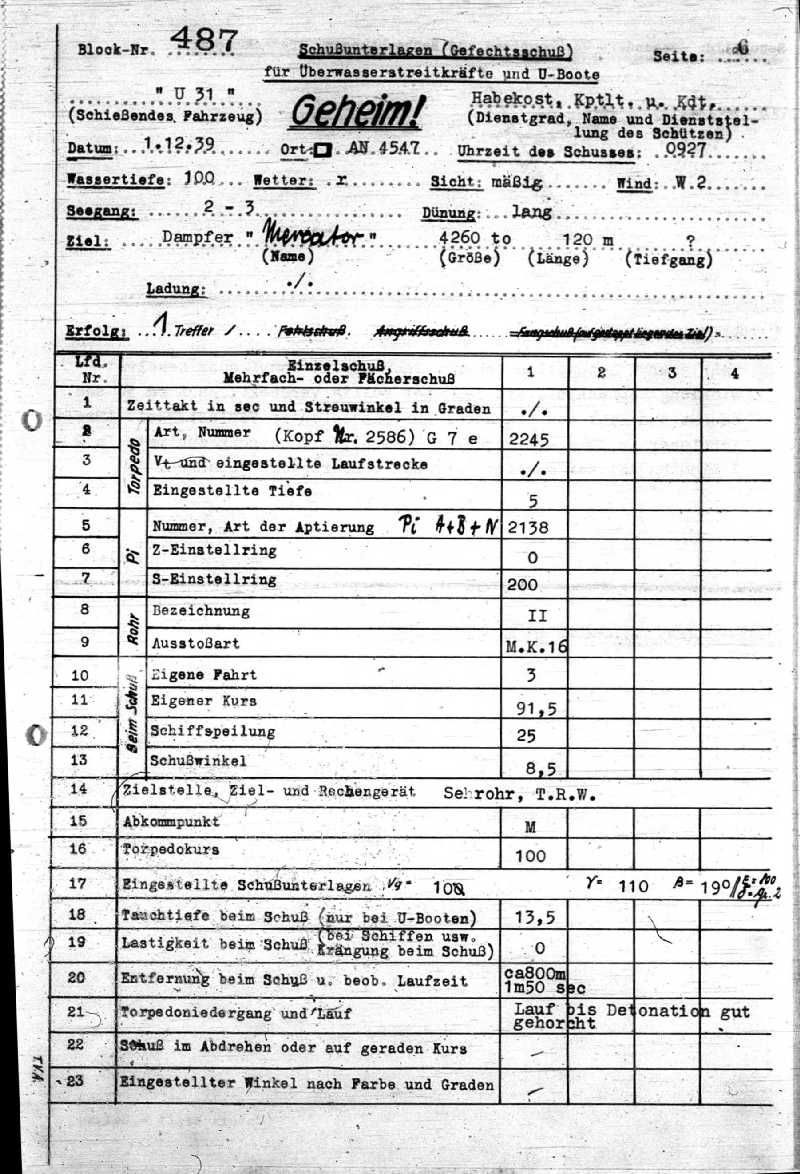 Block-Nr. 487 Schußunterlagen (Gefechtsschuß) Seite: 6
für Überwasserstreitkräfte und U-Boote
" U 31 " Geheim! Habekost, Kptlt. u. Kdt.
(Schießendes Fahrzeug) (Dienstgrad, Name und Dienststel-
lung des Schützen)
Datum: 1.12.39 Ort: AN 4547 Uhrzeit des Schusses: 0927
Wassertiefe: 100 Wetter: r Sicht: mäßig Wind: W.2
Seegang: 2 - 3 Dünung: lang
Ziel: Dampfer " Mercator " 4260 to 120 m ?
(Name) (Größe) (Länge) (Tiefgang)
Ladung: ./.
Erfolg: 1 Treffer / Fehlschuß Angriffsschuß
Lfd. Nr. Einzelschuß, Mehrfach- oder Fächerschuß 1 2 3 4
1 Zeittakt in sec und Streuwinkel in Graden ./.
Torpedo
2 Art, Nummer (Kopf Nr. 2586) G 7 e 2245
3 Vt und eingestellte Laufstrecke ./.
4 Eingestellte Tiefe 5
Pi
5 Nummer, Art der Aptierung Pi A+B+N 2138
6 Z-Einstellring 0
7 S-Einstellring 200
Rohr
8 Bezeichnung II
9 Ausstoßart M.K.16
Beim Schuß
10 Eigene Fahrt 3
11 Eigener Kurs 91,5
12 Schiffspeilung 25
13 Schußwinkel 8,5
14 Zielstelle, Ziel- und Rechengerät Sehrohr, T.R.W.
15 Abkommpunkt M
16 Torpedokurs 100
17 Eingestellte Schußunterlagen Vg= γ= 110 β= 190
18 Tauchtiefe beim Schuß (nur bei U-Booten) 13,5
19 Lastigkeit beim Schuß (bei Schiffen usw. Krängung beim Schuß) 0
20 Entfernung beim Schuß u. beob. Laufzeit ca800m 1m50 sec
21 Torpedoniedergang und Lauf Lauf bis Detonation gut gehorcht
22 Schuß im Abdrehen oder auf geraden Kurs –
23 Eingestellter Winkel nach Farbe und Graden –